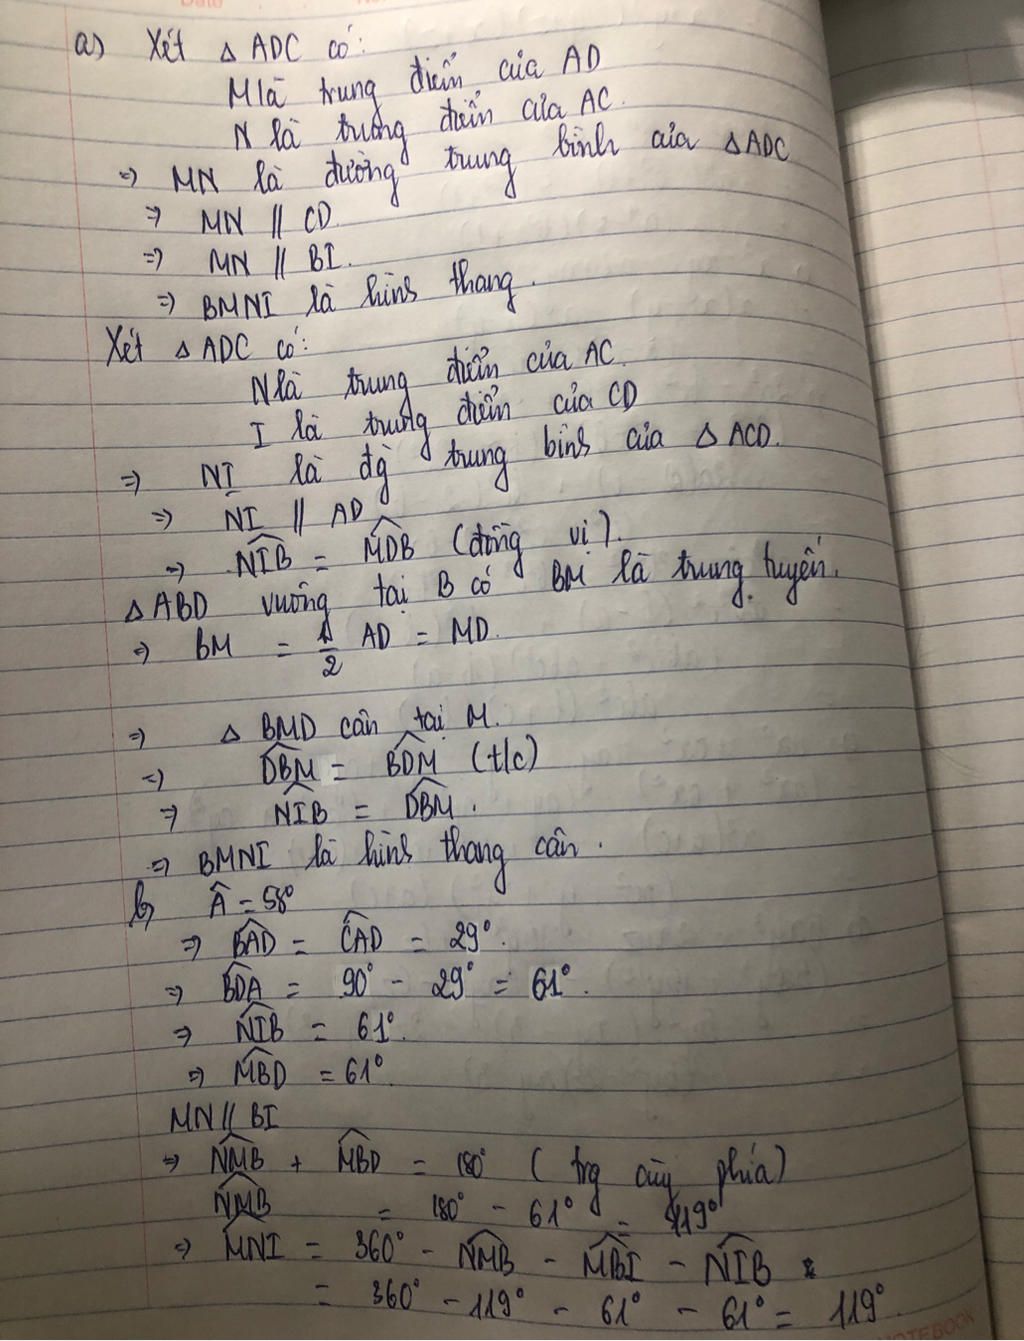 a) Xét △ ADC có:
M là trung điểm của AD
N là trung điểm của AC.
=> MN là đường trung bình của △ ADC
=> MN // CD.
=> MN // BI.
=> BMNI là hình thang.
Xét △ ADC có:
N là trung điểm của AC.
I là trung điểm của CD
=> NI là đg trung bình của △ ACD.
=> NI // AD
=> \widehat{NIB} = \widehat{MDB} (đồng vị).
△ ABD vuông tại B có BM là trung tuyến.
=> BM = \frac{1}{2} AD = MD.
=> △ BMD cân tại M.
=> \widehat{DBM} = \widehat{BDM} (t/c)
=> \widehat{NIB} = \widehat{DBM}.
=> BMNI là hình thang cân.
b) \widehat{A} = 58°
=> \widehat{BAD} = \widehat{CAD} = 29°.
=> \widehat{BDA} = 90° - 29° = 61°.
=> \widehat{NIB} = 61°.
=> \widehat{MBD} = 61°.
MN // BI
=> \widehat{NMB} + \widehat{MBD} = 180° (trg cùng phía)
\widehat{NMB} = 180° - 61° = 119°
=> \widehat{MNI} = 360° - \widehat{NMB} - \widehat{MBI} - \widehat{NIB}
= 360° - 119° - 61° - 61° = 119°.
NOTEBOOK